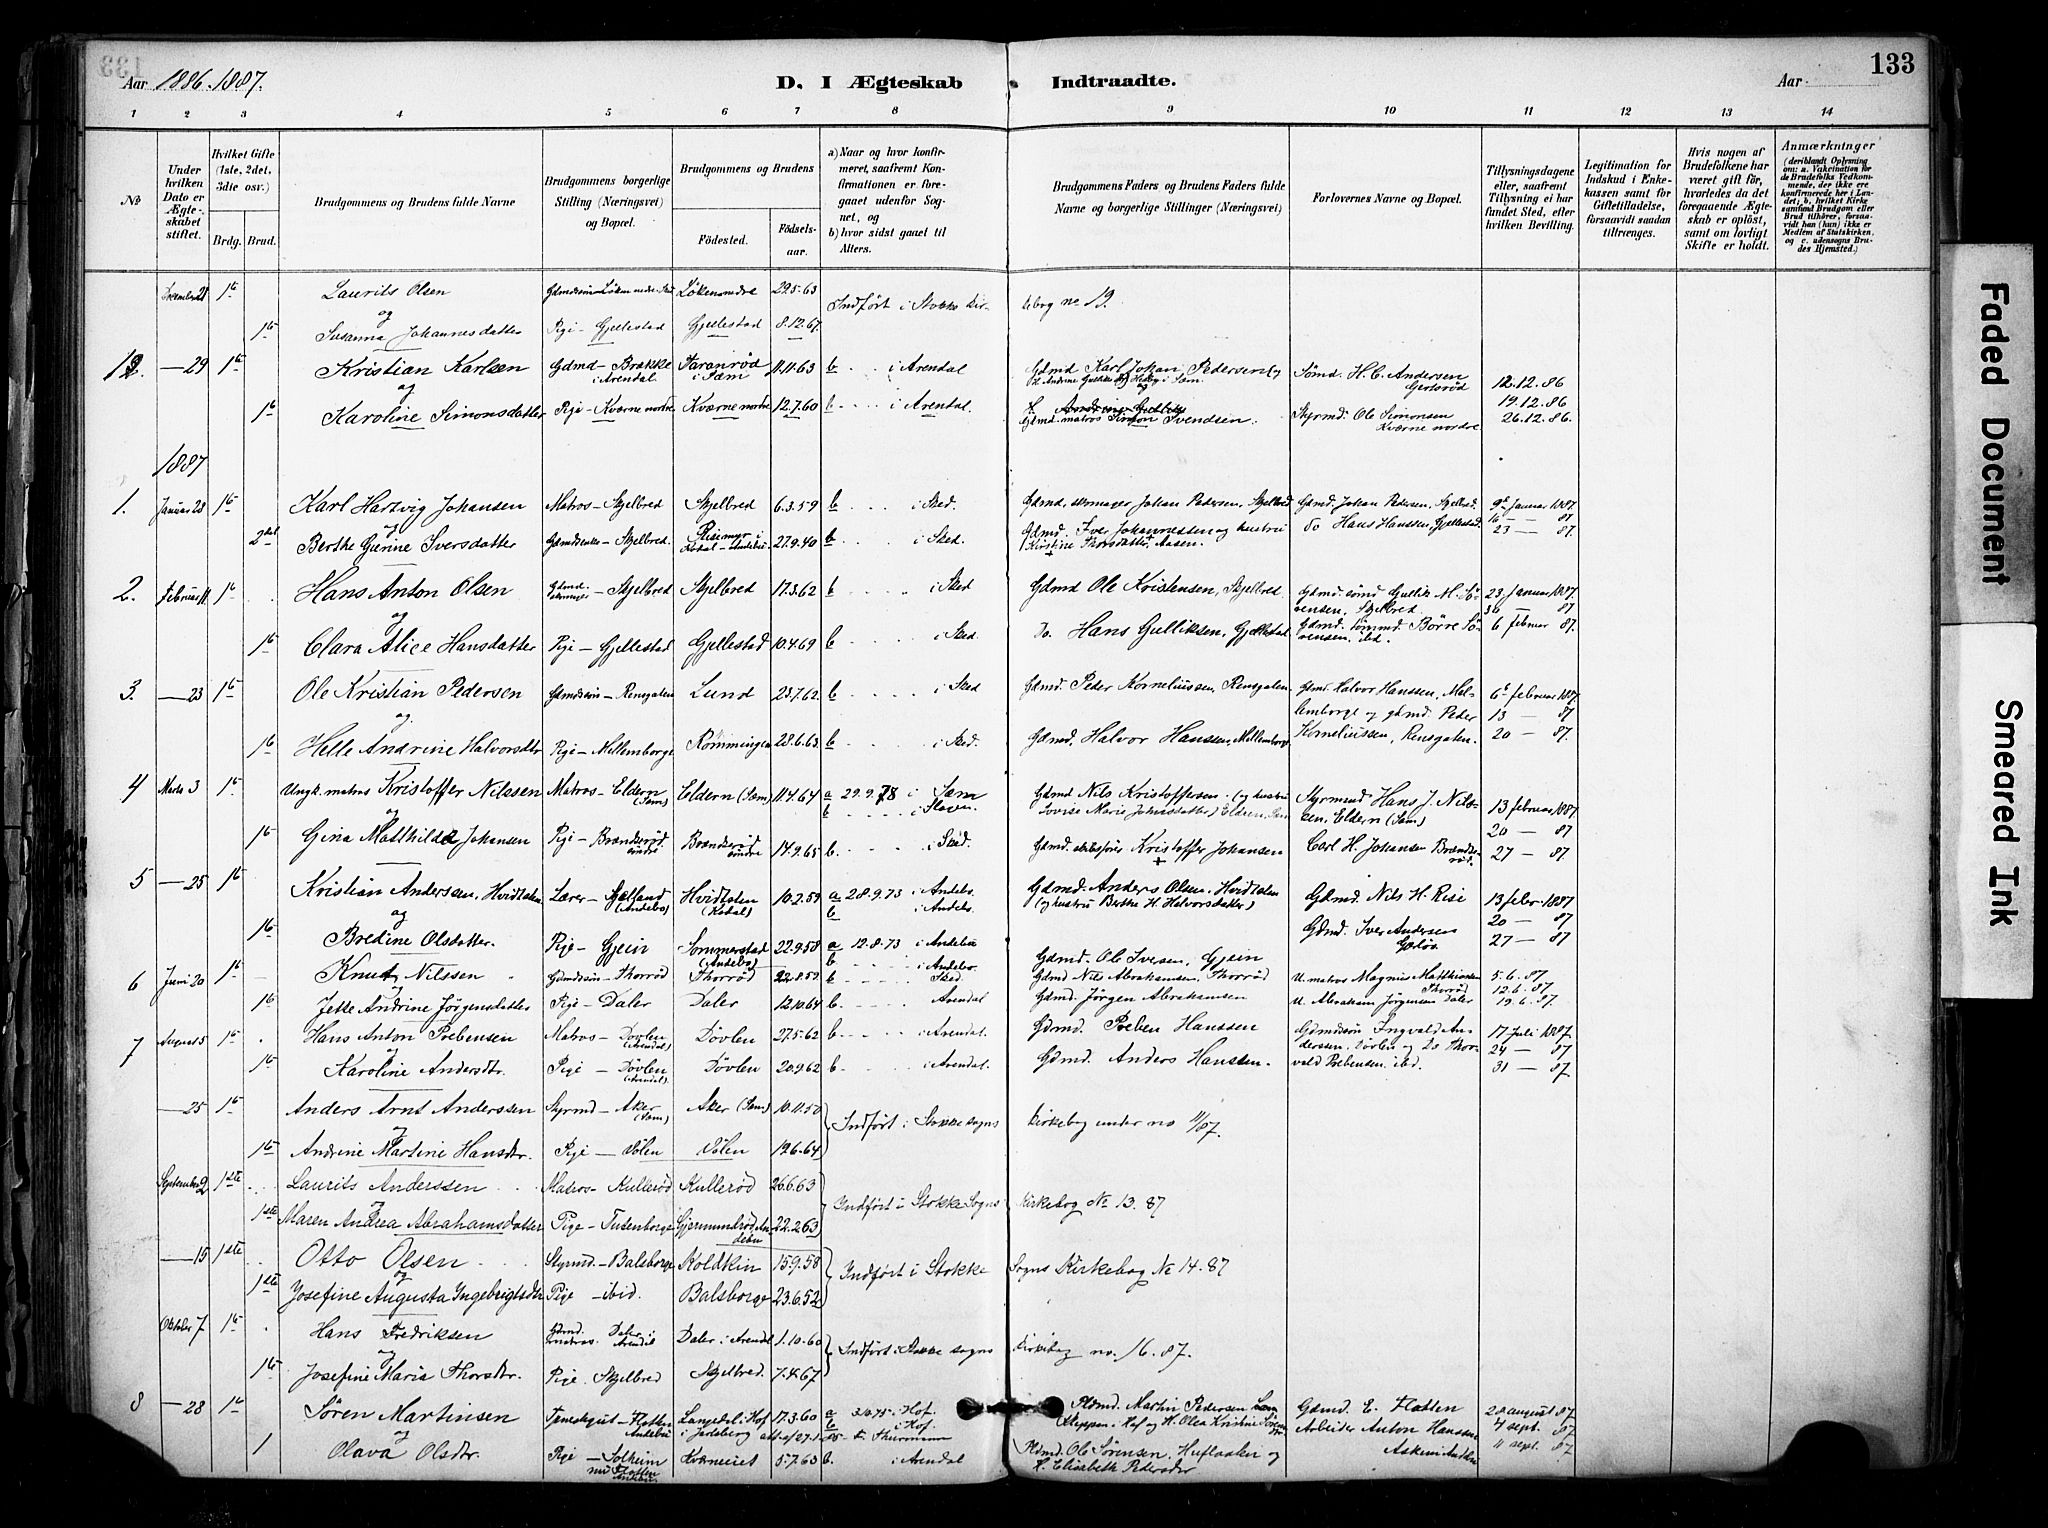 133
Aar 1886-1887.
D. I Ægteskab Indtraadte.
Aar
133
1 2 3 4 5 6 7 8 9 10 11 12 13 14
No
Under hvilken Dato er Ægteskabet stiftet.
Hvilket Gifte (1ste, 2det, 3die osv.)
Brdg. Brud.
Brudgommens og Brudens fulde Navne
Brudgommens borgerlige Stilling (Næringsvei) og Bopæl.
Brudgommens og Brudens
Fødested.
Fødselsaar.
a) Naar og hvor konfirmeret, saafremt Konfirmationen er foregaaet udenfor Sognet, og
b) hvor sidst gaaet til Alters.
Brudgommens Faders og Brudens Faders fulde Navne og borgerlige Stillinger (Næringsvei)
Forlovernes Navne og Bopæl.
Tillysningsdagene eller, saafremt Tillysning ei har fundet Sted, efter hvilken Bevilling.
Legitimation for Indskud i Enkekassen samt for Giftetilladelse, forsaavidt saadan tiltrænges.
Hvis nogen af Brudefolkene har været gift før, hvorledes da det foregaaende Ægteskab er opløst, samt om lovligt Skifte er holdt.
Anmærkninger (deriblandt Oplysning om: a. Vakcination for de Brudefolks Vedkommende, der ikke ere konfirmerede her i Landet; b. hvilket Kirkesamfund Brudgom eller Brud tilhører, forsaavidt han (hun) ikke er Medlem af Statskirken, og c. udensogns Brudes Hjemsted.)
21 1ste Laurits Olsen Løken nedre 29.5.63 Indført i Stokke Kirkebog no 19.
og
1ste Susanna Johannesdatter Pige - Gjellestad Gjellestad 8.12.67
12. — 29 1ste Kristian Karlsen Gdmd Brække i Arendal Taranrød i Sæm 11.11.63 b i Arendal Gdmd Karl Johan Pedersen Sømd. H. C. Andersen 12.12.86
og 19.12.86
1ste Karoline Simonsdatter Pige - Kværne nordre Kværne nordre 12.7.60 b i Arendal. Gdmd. matros Simon Svendsen. Styrmd. Ole Simonsen Kværne nordre 26.12.86.
1887
1. Januar 28 1ste Karl Hartvig Johansen Matros - Skjelbred Skjelbred 6.3.59 b i Sked. Gdmd. Johan Pedersen, Skjelbred Gdmd. Johan Pedersen, Skjelbred. 9de Januar 1887.
og 16 — 87
2det Berthe Gurine Iversdatter Gdmdsenke - Skjelbred. Kodal - Andebu 27.9.40 b i Sked. Gdmd. Ive Johannessen og hustru Kristine Thorsdatter, Aasen. do Hans Hanssen, Gjellestad. 23 — 87.
2. Februar 11 1ste Hans Anton Olsen Gdmd. - Skjelbred Skjelbred 17.3.62 b i Sked Gdmd Ole Kristensen, Skjelbred Gdmd. sømd Gullik M. Sørensen, Skjelbred 23 Januar 1887.
og 30 — 87
1ste Clara Alice Hansdatter Pige - Gjellestad Gjellestad 10.4.69 b i Sked. Do. Hans Gulliksen, Gjellestad Gdmd. sømmd Børre Sørensen, ibd. 6 februar 87.
3. — 23 1ste Ole Kristian Pedersen Gdmdssøn - Rensgaten Lund 23.7.62 b i Sked Gdmd. Peder Korneliussen, Rensgaten. Gdmd. Halvor Hanssen, Mellemborge og gdmd. Peder Korneliussen, Rensgaten. 6te februar 1887.
og 13 — 87
1ste Helle Andrine Halvorsdtr Pige - Mellemborge Rømmingen 28.6.63 b i Sked. Gdmd. Halvor Hanssen, Mellemborge 20 — 87.
4 Marts 3 1ste Ungk. matros Kristoffer Nilssen Matros - Eldern (Sæm) Eldern (Sæm) 11.4.64 a 29.9.78 i Sæm b i Slaven Gdmd Nils Kristoffersen (og hustru Lovise Marie Johnsdatter) Eldern, Sæm Styrmnd. Hans J. Nilssen, Eldern (Sæm) 13 februar 1887
og 20 — 87
1ste Gina Matthilde Johansen Pige - Brænderød søndre Brænderød søndre 14.9.65 b. i Sked. Gdmd. skibsfører Kristoffer Johansen Carl H. Johansen Brænderød. 27 — 87.
5 — 25 1ste Kristian Anderssen, Hvidtsten Lærer - (Andebo) Hvidtsten (Kodal) 10.2.59 a 28.9.73 i Andebo b i Andebo. Gdmd. Anders Olsen, Hvidtsten (og hustru Berthe H. Halvorsdatter) Gdmd. Nils H. Risi 13 febr. 1887
og 20 — 87
1ste Bredine Olsdatter. Pige - Gjein Sommerstad (Andebo) 22.9.58 a 12.8.73 i Andebu b i Andebo. Gdmd. Ole Iversen, Gjein Gdmd. Iver Andersen 27 — 87
6 Juni 20 1ste Knut Nilssen Gdmdssøn - Thorrød Thorrød 22.8.59 b Sked. Gdmd Nils Abrahamsen, Thorrød U. matros Magnus Matthiassen Thorrød 5.6.87.
og 12.6.87
1ste Jette Andrine Jørgensdatter Pige - Daler Daler 12.10.64 b Arendal Gdmd. Jørgen Abrahamsen U. Abraham Jørgensen Daler 19.6.87.
7 August 5 1ste Hans Anton Prebensen Matros - Døvlen (Arendal) Døvlen 27.5.62 b i Arendal. Gdmd. Preben Hanssen Gdmdssøn Ingvald Anderssen, Døvlen og Do Thorvald Prebensen ibd. 17 Juli 1887.
og 24 — 87
1ste Karoline Andersdtr. Pige - Døvlen (Arendal) Døvlen 20.9.62 b i Arendal. Gdmd. Anders Hanssen. 31 — 87.
— 25 1ste Anders Arnt Anderssen Styrmd - Aker (Sæm) Aker (Sæm) 10.11.50 Indført i Stokke sogns Kirkebog under no 11/87.
og
1ste Andrine Martine Hansdtr. Pige - Vølen Vølen 19.6.64
September 2 1ste Laurits Anderssen Matros - Kullerød Kullerød 26.6.63 Indført i Stokke Sogns Kirkebog No 13. 87
og
1ste Maren Andrea Abrahamsdatter Pige - Tufenborge Gjermundrød Andebu 22.2.63
— 15 1ste Otto Olsen Styrmd. - Balsborge Koldkin 15.9.58 Indført i Stokke Sogns Kirkebog No 14. 87
og
1ste Josefine Augusta Ingebrigtsdtr Pige - ibid. Balsborge 23.6.52
Oktober 7 1ste Hans Fredriksen Gdmd. matros. Daler i Arendal Daler i Arendal 1.10.60 Indført i Stokke sogns Kirkebog no. 16. 87.
og
1ste Josefine Maria Thorsdtr. Pige. Skjelbred Skjelbred. 7.4.67
8 — 28 1ste Søren Martinsen Andebu Langedal i Hof i Jarlsberg 17.3.60 a 3.10.75 i Hof b i Hof. Pldmd. Martin Pedersen og H. Olea Kristine Gdmd. E. Flatten 28 august 87
og Arbeider Anton Hanssen 4 sept. 87
1 Olava Olsdtr. Pige - Solheim Andebu. Kværneiet 5.7.63 b. i Arendal Pldmd. Ole Sørensen, Huflaaker og H. Elisabeth Pedersdtr 11 sept. 87
Faded Document
Smeared Ink